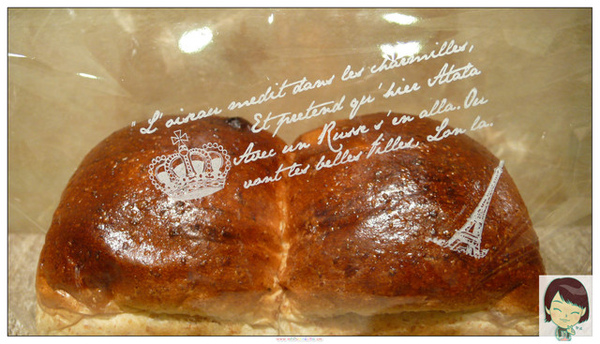 "L'oiseau medit dans les charmilles,
Et pretend qu'hier Atala
Avec un Russe s'en alla. Ou
vont tes belles filles, Lon la.